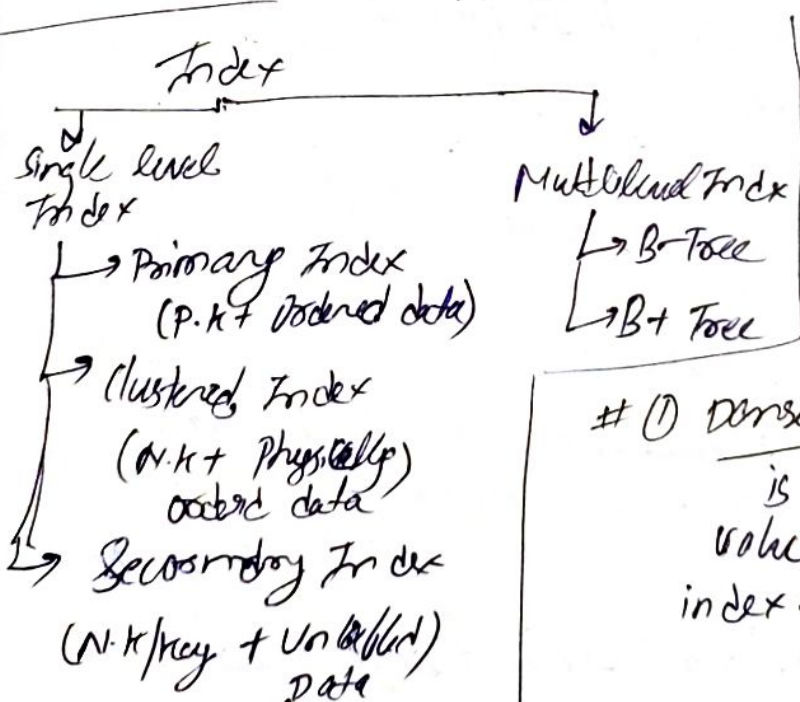 Index
Single level
Index
Primary Index
(P.K + Ordered data)
Clustered Index
(N.K + Physically)
data
Secosmdry Index
(N.K/Key +
Data
Multilevel Index
B-Tree
B+ Tree
# ① Dense
is
value
index